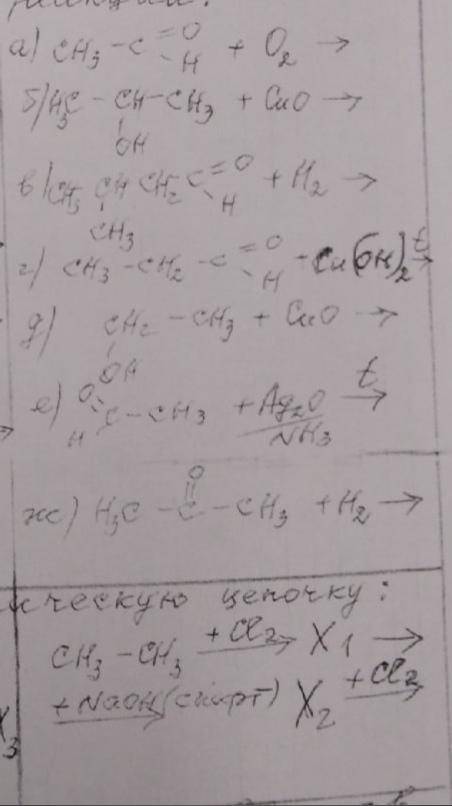 а) CH₃ – C =O –H + O₂ →
б) H₃C – CH – CH₃ + CuO →
OH
в) CH₃ CH CH₂ C =O –H + H₂ →
CH₃
г) CH₃ – CH₂ – C =O –H + Cu(OH)₂ t→
д) CH₂ – CH₃ + CuO →
OH
е) O= H– C – CH₃ + Ag₂O/NH₃ t→
O
ж) H₃C – C – CH₃ + H₂ →
ическую цепочку:
CH₃ – CH₃ +Cl₂→ X₁ →
+NaOH (спирт)→ X₂ +Cl₂→
X₃